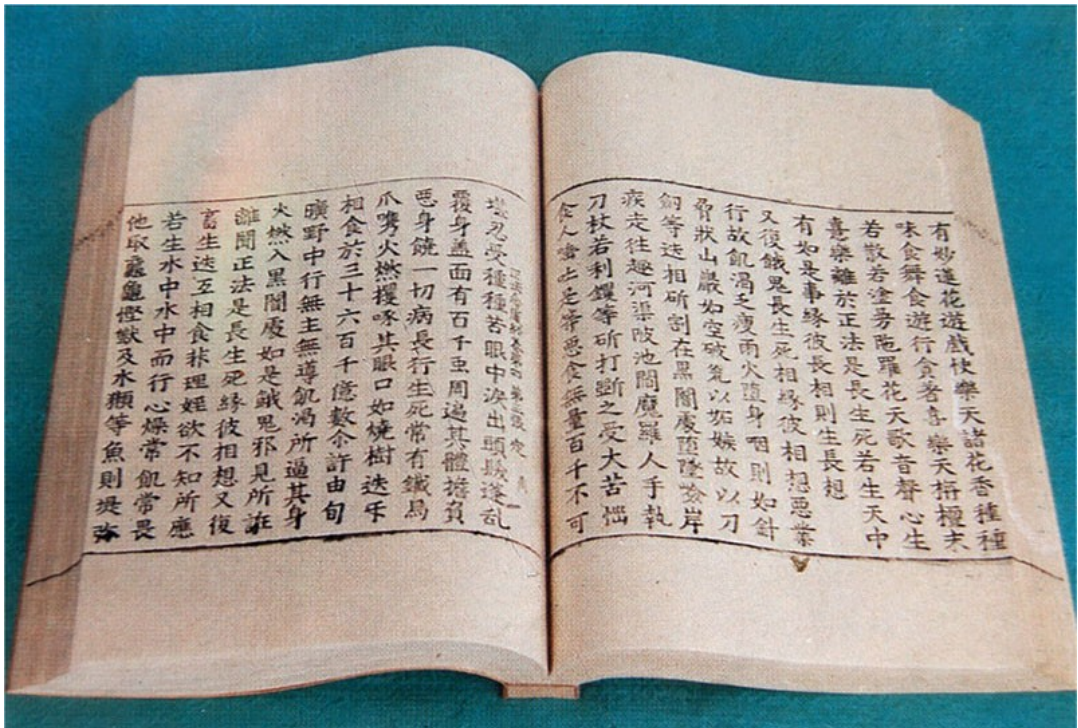 有妙蓮花遊戲快樂天諸花香種種
味食舞食遊行食著喜樂天栴檀末
若散若塗曼陁羅花天歌音聲心生
喜樂離於正法是長生死若生天中
有如是事緣彼長相則生長想
又復餓鬼長生死相緣彼相想惡業
行故飢渴乏瘦雨火墮身咽則如針
脅狀山巖如空破瓮以妬嫉故以刀
釰等迭相斫割在黑闇處墮墜嶮岸
疾走往趣河渠陂池閻魔羅人手執
刀杖若利钁等斫打斷之受大苦惱
食人吐是等惡食無量百千不可
正法念處經 第三張 定
堪忍受種種苦眼中淚出頭髮蓬乱
覆身盖面有百千虫周遍其體擔負
惡身饒一切病長行生死常有鐵烏
爪嘴火燃攫啄其眼口如燒樹迭
相食於三十六百千億數尒許由旬
曠野中行無主無導飢渴所逼其身
火燃入黑闇處如是餓鬼邪見所誑
離聞正法是長生死緣彼相想又復
畜生迭互相食非理婬欲不知所應
若生水中水中而行心燥常飢常畏
他取黿龜慳獸及水獺等魚則堤弥